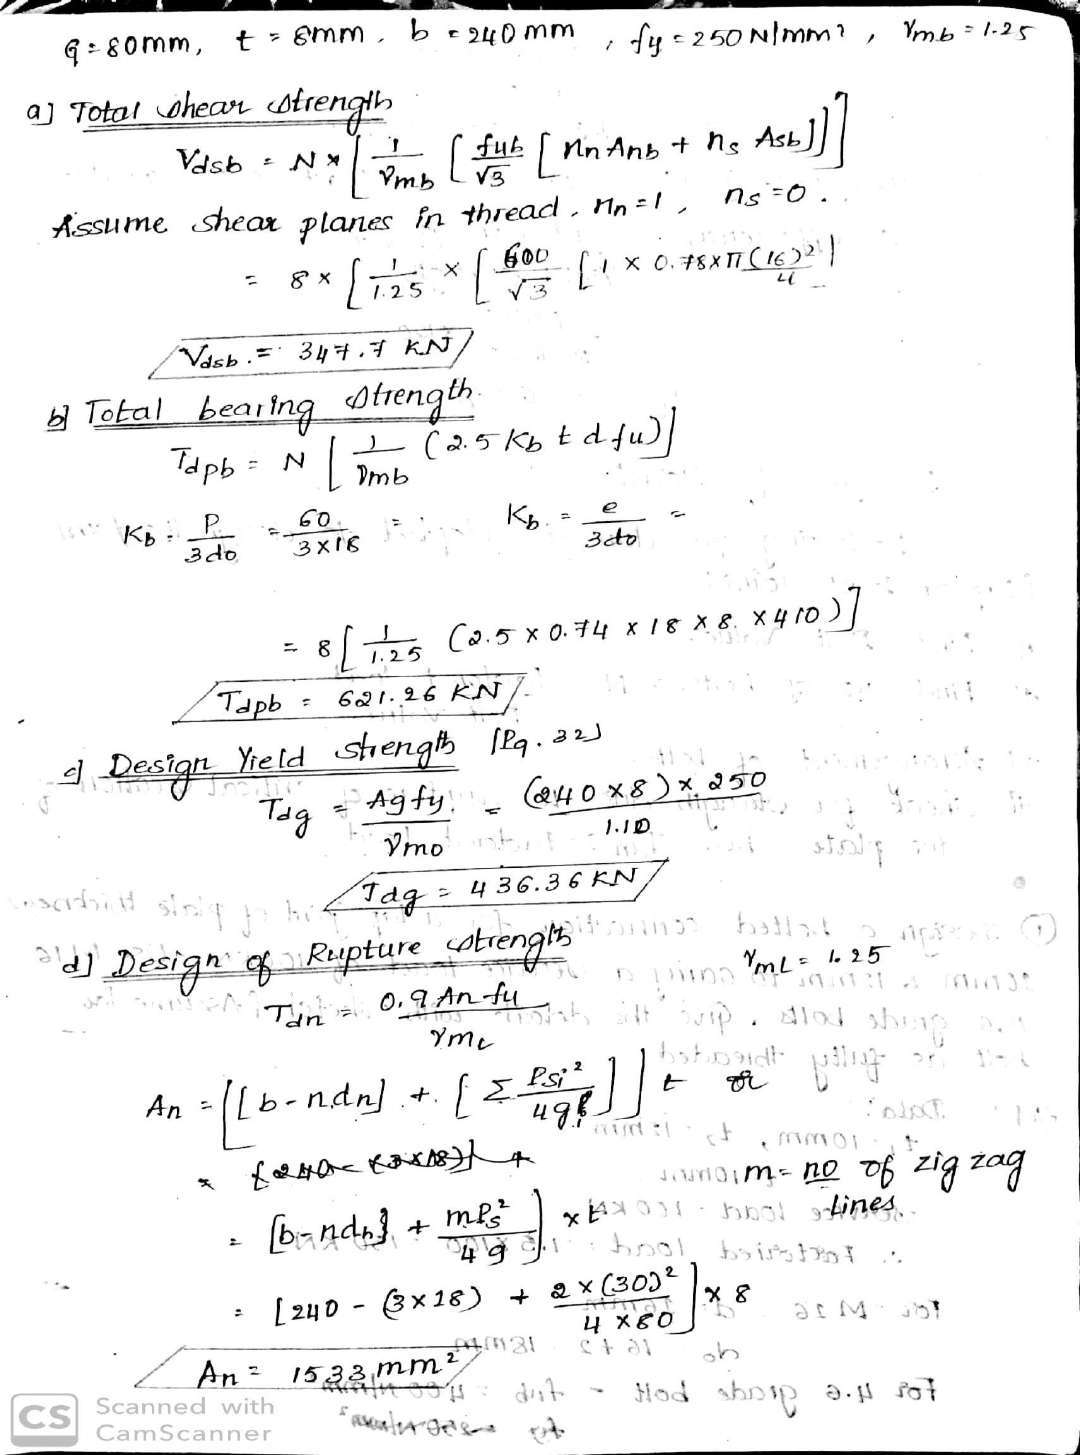 g = 80mm, t = 8mm, b = 240mm, fy = 250 N/mm², γmb = 1.25
a] Total shear strength
Vdsb = N × [ 1/γmb [ fub/√3 [ nn Anb + ns Asb ]]]
Assume shear planes in thread, nn = 1, ns = 0.
= 8 × [ 1/1.25 × [ 600/√3 [ 1 × 0.78 × π(16)²/4 ]
Vdsb = 347.7 KN
b] Total bearing strength.
Tdpb = N [ 1/γmb (2.5 Kb t d fu) ]
Kb = P/3do = 60/3×18 = Kb = e/3do =
= 8 [ 1/1.25 (2.5 × 0.74 × 18 × 8 × 410 )]
Tdpb = 621.26 KN
c] Design Yield strength [Pg. 32]
Tdg = Ag fy/γmo = (240 × 8) × 250/1.10
Tdg = 436.36 KN
d] Design of Rupture strength γml = 1.25
Tdn = 0.9 An fu/γml
An = [[b - n.dn] + [ Σ Psi²/4g ]] t or
m = no of zig zag lines
= [b - ndn} + mPs²/4g ] × t
= [240 - (3×18) + 2×(30)²/4×80 ] × 8
An = 1533 mm²
CS Scanned with
CamScanner